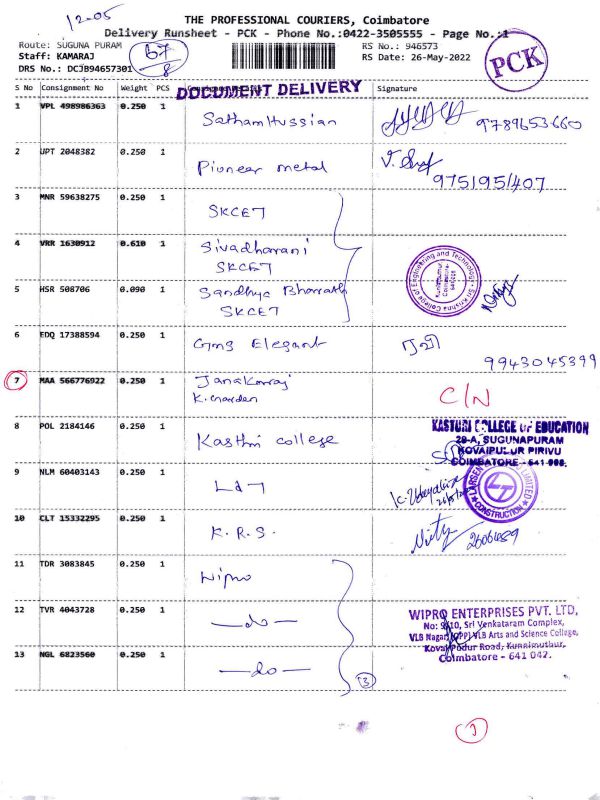 12-05
THE PROFESSIONAL COURIERS, Coimbatore
Delivery Runsheet - PCK - Phone No.:0422-3505555 - Page No.:1
Route: SUGUNA PURAM
Staff: KAMARAJ
DRS No.: DCJB94657301
67/8
RS No.: 946573
RS Date: 26-May-2022
PCK
S No Consignment No Weight PCS Signature
DOCUMENT DELIVERY
1 VPL 498986363 0.250 1 SathamHussian 9789653660
2 UPT 2048382 0.250 1 Pioneer metal 9751951407
3 MNR 59638275 0.250 1 SKCET
4 VRR 1630912 0.610 1 Sivadharani
SKCET
5 HSR 508706 0.090 1 Sandhya Bharath
SKCET
Sri Krishna College of Engineering and Technology
Kuniamuthur,
Coimbatore-
641008
6 EDQ 17388594 0.250 1 Gms Elegant ரவி
9943045399
7 MAA 566776922 0.250 1 Janakanraj
K. Chandan
C/N
8 POL 2184146 0.250 1 Kasthri college
KASTURI COLLEGE OF EDUCATION
29-A, SUGUNAPURAM
KOVAIPUDUR PIRIVU
COIMBATORE - 641 008.
9 NLM 60403143 0.250 1 L&T
LARSEN LIMITED
LT
CONSTRUCTION
10 CLT 15332295 0.250 1 K.R.S.
2606489
11 TDR 3083845 0.250 1 Wipro
12 TVR 4043728 0.250 1 —do—
13 NGL 6823560 0.250 1 —do—
3
WIPRO ENTERPRISES PVT. LTD,
No: 9/10, Sri Venkataram Complex,
VLB Nagar, (OPP) VLB Arts and Science College,
Kovai Pudur Road, Kunnimuthur,
Coimbatore - 641 042.
1